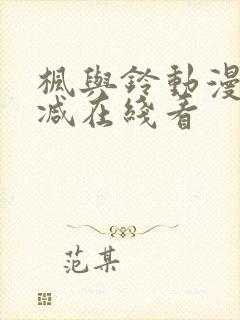 楓與鈴動漫
减在綫看
范某